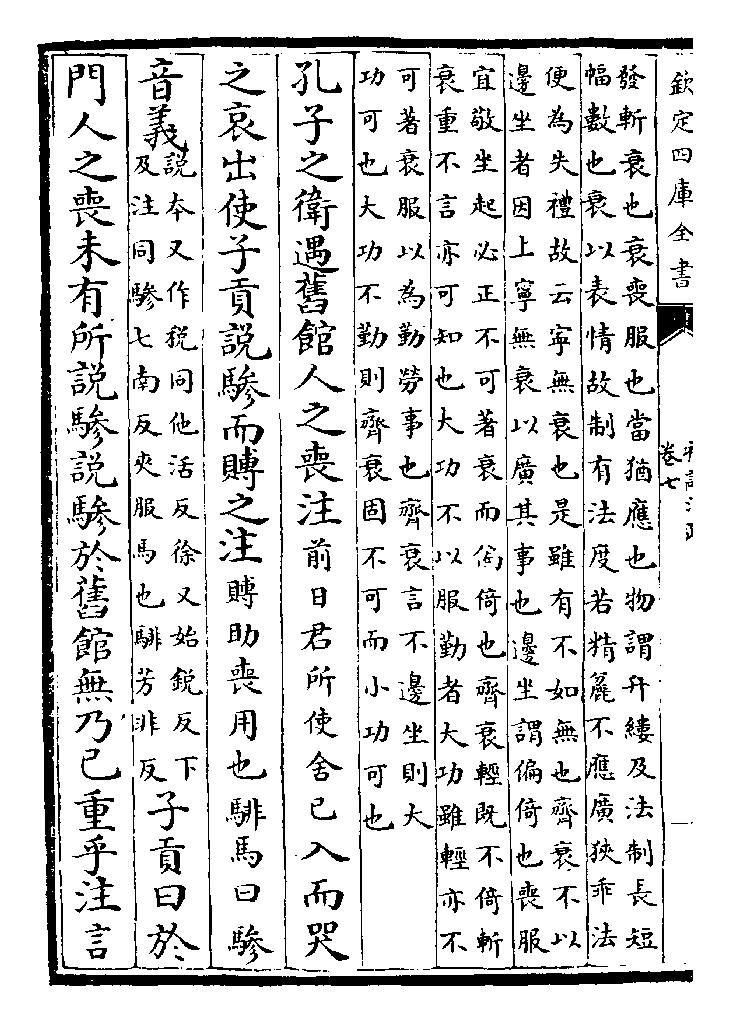 欽定四庫全書
卷七
發斬衰也衰喪服也當猶應也物謂升縷及法制長短
幅數也衰以表情故制有法度若精麤不應廣狹乖法
便為失禮故云寧無衰也是雖有不如無也齊衰不以
邊坐者因上寧無衰以廣其事也邊坐謂偏倚也喪服
宜敬坐起必正不可著衰而偏倚也齊衰輕既不倚斬
衰重不言亦可知也大功不以服勤者大功雖輕亦不
可著衰服以為勤勞事也齊衰言不邊坐則大
功可也大功不勤則齊衰固不可而小功可也
孔子之衛遇舊館人之喪注前日君所使舍已入而哭
之哀出使子貢說驂而賻之注賻助喪用也騑馬曰驂
音義說本又作稅同他活反徐又始銳反下
及注同驂七南反夾服馬也騑芳非反
子貢曰於
門人之喪未有所說驂說驂於舊館無乃已重乎注言